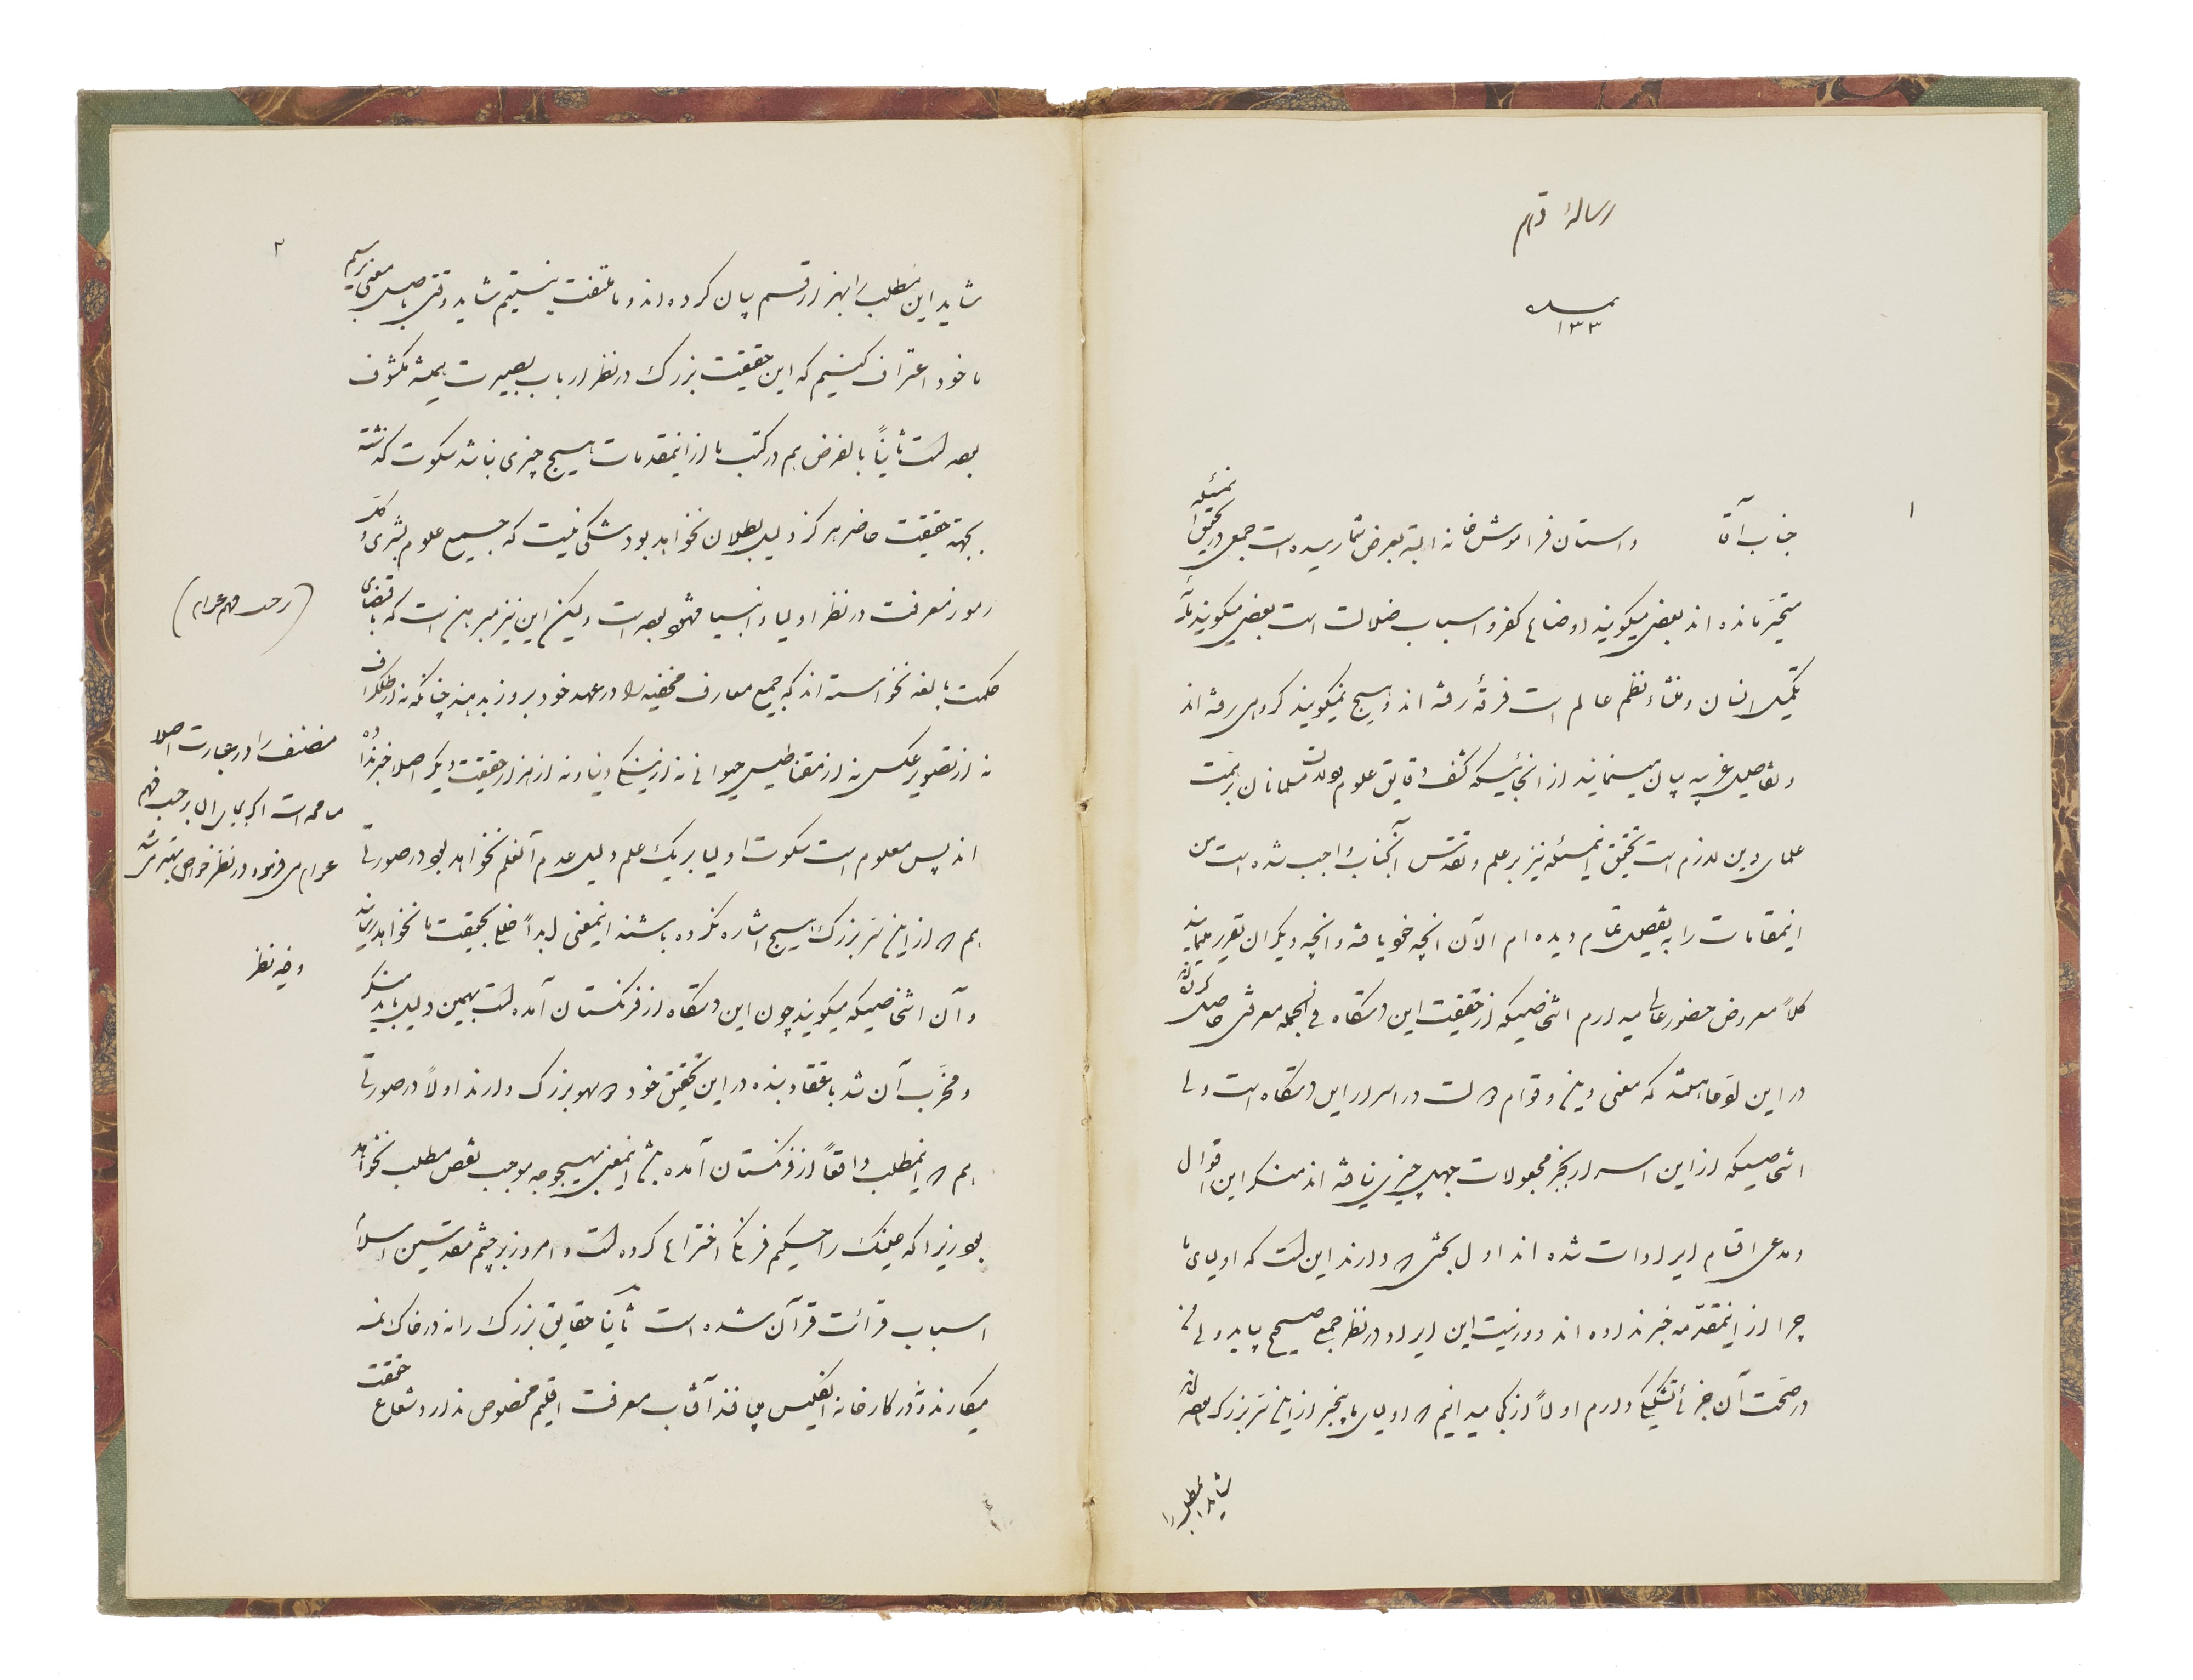 رسالهٔ
۱۳۳
۱
جناب آقا داستان فراموش خانه البته بعرض شما رسیده است جمعی در تحقیق اینمسئله
متحیر مانده اند بعضی میگویند اوضاع کفر و اسباب ضلالت است بعضی میگویند مآیه
تکمیل انسان و منشاء نظم عالم است فرقهٔ رفته اند و هیچ نمیگویند گروهی نرفته اند
و تفاصیل غریبه بیان مینمایند از آنجائیکه کشف دقایق علوم بولایت مسلمانان بر ذمت
علمای دین لازم است تحقیق اینمسئله نیز بر علم و تقدس آنجناب واجب شده است من
اینمقامات را به تفصیل تمام دیده ام الآن انچه خود یافته و انچه دیگران تقریر مینمایند
کلاً معروض حضور عالی میدارم اشخاصیکه از حقیقت این دستگاه فی الجمله معرفتی حاصل کرده اند
در این قول همه که معنی دین و قوام دولت در اسرار این دستگاه است ولی
اشخاصیکه از این اسرار بجز مجعولات جهل چیزی نیافته اند منکر این اقوال
و مدعی اقسام ایرادات شده اند اول بحثی که دارند این است که اولیای ما
چرا از اینمقدمه خبر نداده اند دور نیست این ایراد در نظر جمعی صحیح بیاید ولی من
در صحت آن جزئی تشکیکی دارم اولاً از کجا میدانیم که اولیای ما بیخبر از این سر بزرگ بوده اند
شاید اینمطلب را
۲
شاید این مطلب را بهزار قسم بیان کرده اند و ما ملتفت نیستیم شاید وقتی باصل معنی برسیم
ما خود اعتراف کنیم که این حقیقت بزرگ در نظر ارباب بصیرت همیشه مکشوف
بوده است ثانیاً بالفرض هم در کتب ما از اینمقدمات هیچ چیزی نباشد سکوت گذشته
بجهته حقیقت حاضر هرگز دلیل بطلان نخواهد بود شکی نیست که جمیع علوم بشری و کل
رموز معرفت در نظر اولیا و انبیا مشهود بوده است ولیکن این نیز مبرهن است که باقتضای
حکمت بالغه نخواسته اند که جمیع معارف مخفیه را در عهد خود بروز بدهند چنانکه نه از تلگراف
نه از تصویر عکس نه از مقناطیس حیوانی نه از ینگی دنیا و نه از هزار حقیقت دیگر اصلا خبر نداده
اند پس معلوم است سکوت اولیا بر یک علم دلیل عدم آنعلم نخواهد بود در صورتی
هم که از این سر بزرگ هیچ اشاره نکرده باشند اینمعنی ابداً خللی بحقیقت ما نخواهد رسانید
و آن اشخاصیکه میگویند چون این دستگاه از فرنگستان آمده است بهمین دلیل باید منکر
و مخرب آن شد باعتقاد بنده در این تحقیق خود سهو بزرگ دارند اولاً در صورتی
هم که اینمطلب واقعاً از فرنگستان آمده باشد اینمعنی بهیچوجه موجب نقص مطلب نخواهد
بود زیرا که عینک را حکیم فرنگی اختراع کرده است و امروز بر چشم مقدسین اسلام
اسباب قرائت قرآن شده است ثانیاً حقایق بزرگ را نه در خاک نمسه
میکارند و نه در کارخانه انگلیس میبافند آفتاب معرفت اقلیم مخصوص ندارد و شعاع حقیقت
مصنف را در عبارت اصلا